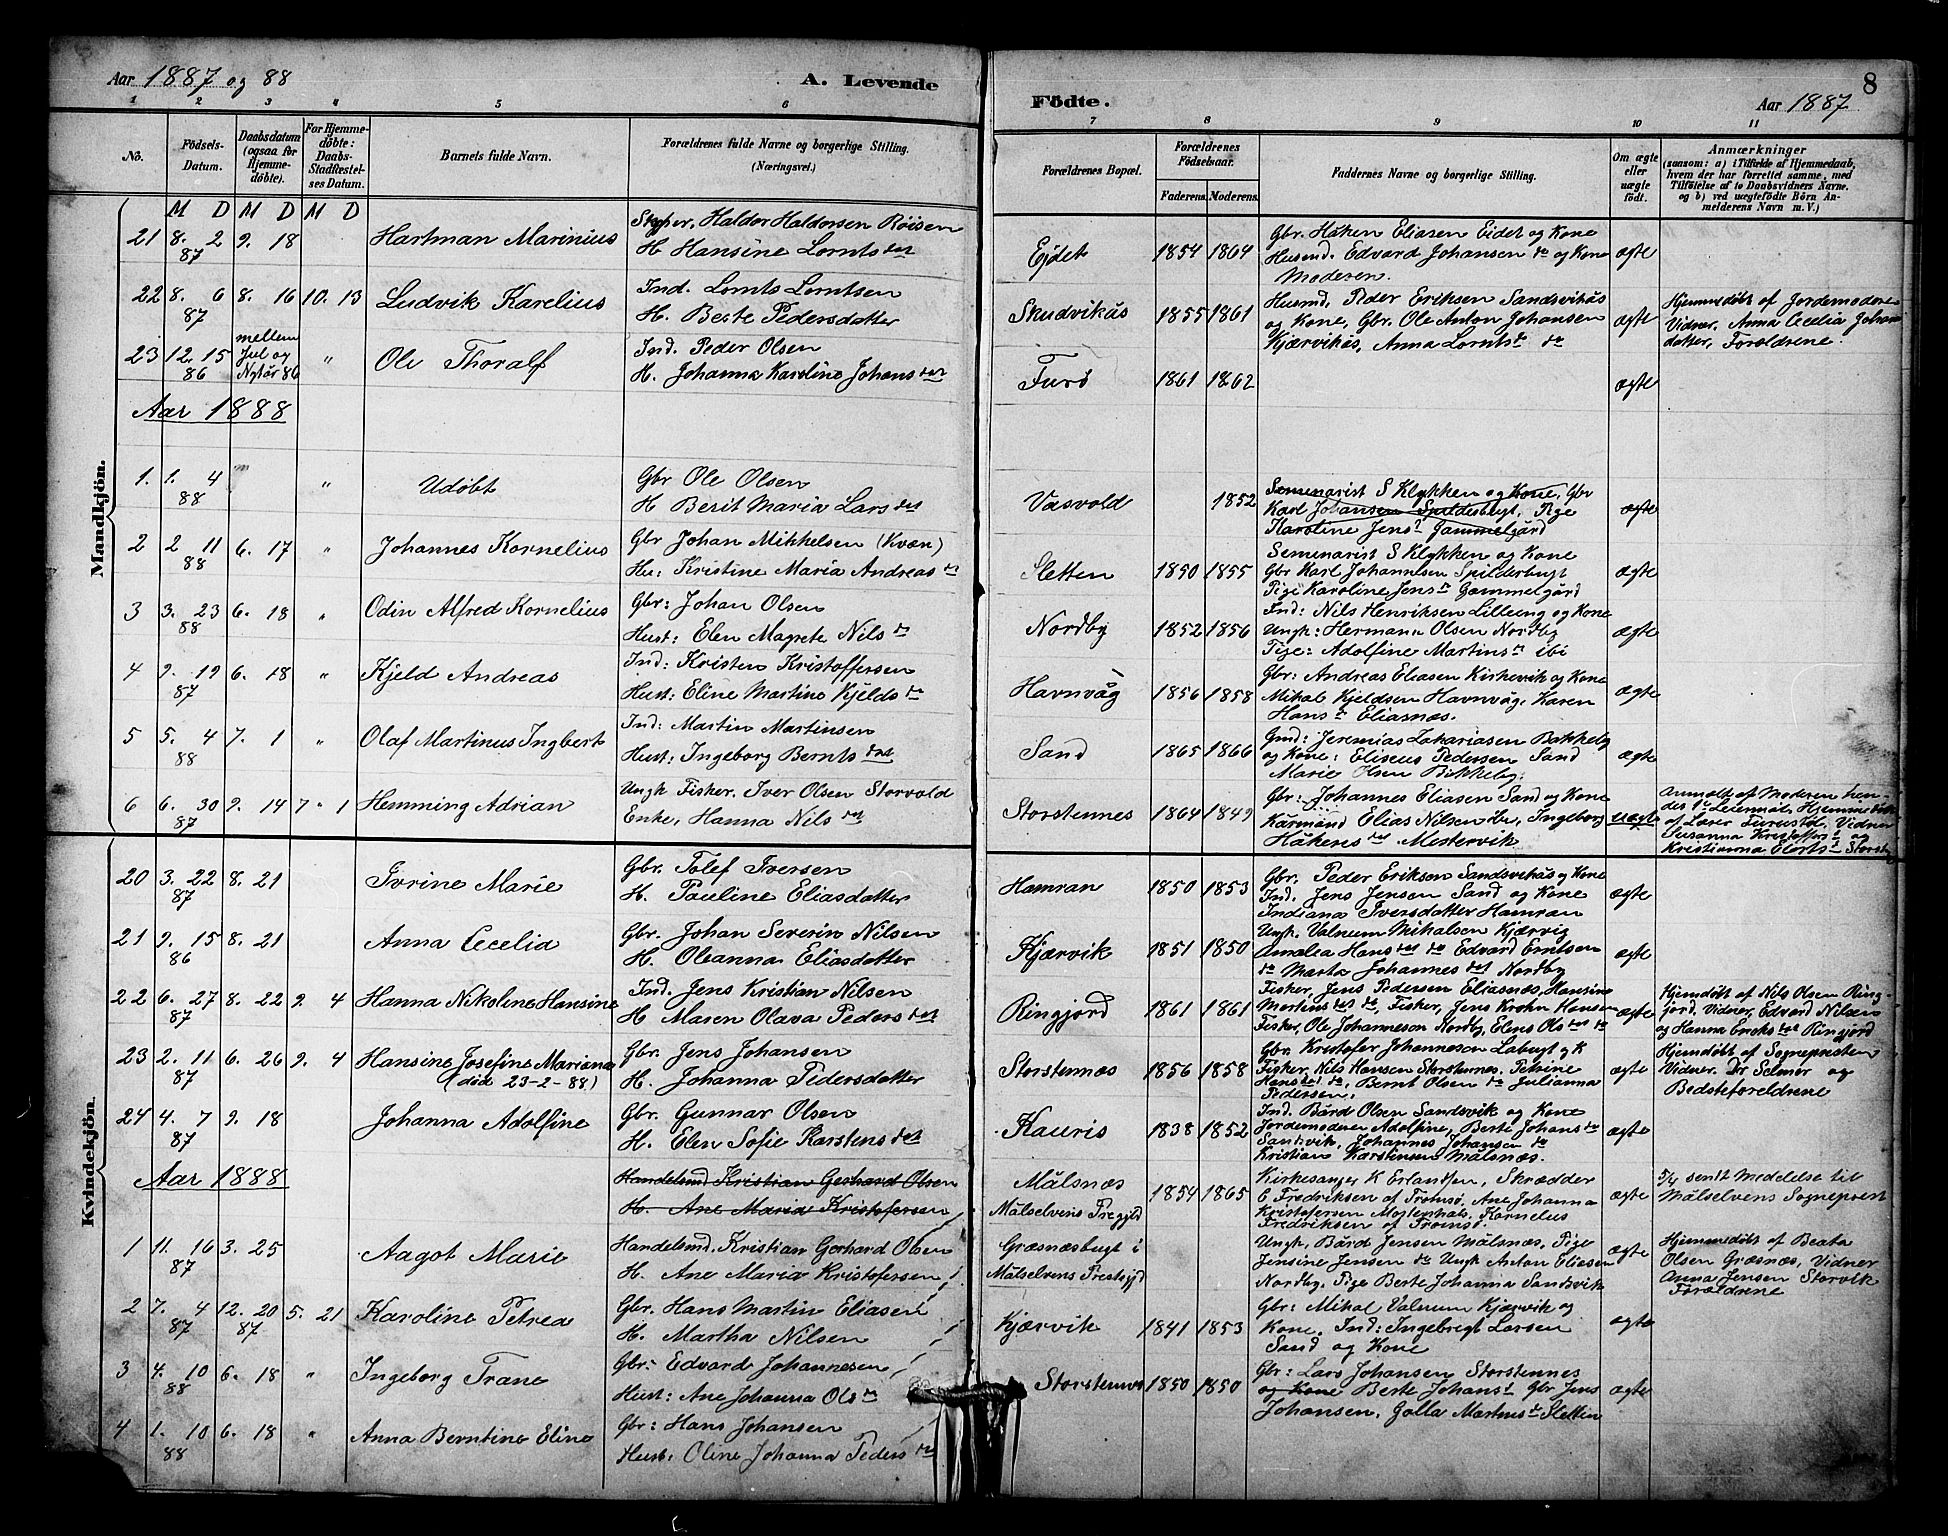 Aar 1887 og 88
A. Levende
1 2 3 4 5 6
No.
Födsels-Datum.
Daabsdatum (ogsaa for Hjemmedöbte).
For Hjemmedöbte: Daabs-Stadfæstelses Datum.
Barnets fulde Navn.
Forældrenes fulde Navne og borgerlige Stilling. (Næringsvei.)
Mandkjön.
M D M D M D
21 8. 2 9. 18 Hartman Marinius Haldor Haldorsen Röisen
87 H Hansine Lornts dat
22 8. 6 8. 16 10. 13 Ludvik Karelius Ind. Lornts Lorntsen
87 H. Berte Pedersdatter
23 12. 15 mellem Jul og Nytår 86 " Ole Thoralf Ind. Peder Olsen
86 H. Johanna Karoline Johans dat
Aar 1888
1. 1. 4 " Udöbt Gbr Ole Olsen
88 H Berit Maria Lars dat
2 2 11 6. 17 " Johannes Kornelius Gbr Johan Mikkelsen (Kvæn)
88 Hu: Kristine Maria Andreas dt
3 3. 23 6. 18 " Odin Alfred Kornelius Gbr: Johan Olsen
88 Hust: Elen Magrete Nils dt
4 9. 19 6. 18 " Kjeld Andreas Ind: Kristen Kristoffersen
87 Hust: Eline Martine Kjelds dt
5 5. 4 7. 1 " Olaf Martinus Ingbert Ind: Martin Martinsen
88 Hust: Ingeborg Bernts dat
6 6. 30 9. 14 7 " 1 Hemming Adrian Ungk Fisker, Iver Olsen Storvold
87 Enke, Hanna Nils dat
Kvindekjön.
20 3. 22 8. 21 Ivrine Marie Gbr. Tolef Iversen
87 H. Pauline Eliasdatter
21 9. 15 8. 21 Anna Cecelia Gbr. Johan Severin Nilsen
86 H. Oleanna Eliasdatter
22 6. 27 8. 22 9. 4 Hanna Nikoline Hansine Ind. Jens Kristian Nilsen
87 H Maren Olava Peders dat
23 2. 11 6. 26 9. 4 Hansine Josefine Mariana Gbr. Jens Johansen
87 (död 23-2-88) H. Johanna Pedersdatter
24 4. 7 9. 18 Johanna Adolfine Gbr. Gunnar Olsen
87 H. Elen Sofie Karstens dat
Aar 1888 Handelsmd Kristian Gerhard Olsen
H. Ane Maria Kristofersen
1 11. 16 3. 25 Aagot Marie Handelsmd. Kristian Gerhard Olsen
87 H. Ane Maria Kristofersen
2 7. 4 12. 20 5. 21 Karoline Petrea Gbr. Hans Martin Eliasen
87 87 H. Martha Nilsen
3 4. 10 6. 18 " Ingeborg Trane Gbr: Edvard Johannesen
88 Hust: Ane Johanna Ols dt
4 1. 10 6. 18 " Anna Berntine Eline Gbr: Hans Johansen
88 Hust: Oline Johanna Peders dt
Födte.
Aar 1887
8
7 8 9 10 11
Forældrenes Bopæl.
Forældrenes Födselsaar.
Faderens. Moderens.
Faddernes Navne og borgerlige Stilling.
Om ægte eller uægte födt.
Anmærkninger
(saasom: a) i Tilfælde af Hjemmedaab, hvem der har forrettet samme, med Tilföielse af to Daabsvidners Navne. og b) ved uægtefödte Börn Anmelderens Navn m. V.)
Gbr. Håken Eliasen Eidet og Kone
Ejdet 1854 1864 Husmd. Edvard Johansen do og Kone ægte
Moderen.
Husmd. Peder Eriksen Sandsvikås Hjemmedöbt af Jordemoderen
Skudvikås 1855 1861 og Kone, Gbr. Ole Anton Johansen ægte Vidner, Anna Cecelia Johans
Kjærvikås, Anna Lornts dt do datter, Forældrene.
Furö 1861 1862 ægte
Semenarist S Klykken og Kone, Gbr
Vasvold 1852 Karl Johansen Spildesbugt, Pige ægte
Karoline Jens dt Gammelgård
Semenarist S Klykken og Kone
Sletten 1850 1855 Gbr Karl Johannesen Spilderbugt ægte
Pige Karoline Jens dt Gammelgård
Ind: Nils Henriksen Lilleeng og Kone
Nordby 1852 1856 Ungk: Hermann Olsen Nordby ægte
Pige: Adolfine Martins dt ibi
Gbr: Andreas Eliasen Kirkevik og Kone
Havnvåg 1856 1858 Mikal Kjeldsen Havnvåg, Karen ægte
Hans dt Eliasnæs.
Gmd: Jeremias Zakariasen Bakkeby
Sand 1865 1866 og Kone: Eliseus Pedersen Sand ægte
Marie Olsen Bakkeby.
Gbr: Johannes Eliasen Sand og Kone Anmeldt af Moderen
Storstennes 1864 1849 Elias Nilsen ibi, Ingeborg uægte
Håkens dat Mestervik
Gbr. Peder Eriksen Sandsvikås og Kone
Hamran 1850 1853 Ind. Jens Jensen Sand og Kone ægte
Indiana Iversdatter Hamran
Ungk. Valnum Mihalsen Kjærvig
Kjærvik 1851 1850 Amalea Hans dat do Edvard Erntsen ægte
do Marta Johannes dat Nordby
Fisker, Jens Pedersen Eliasnæs, Hansine Hjemdöbt af Nils Olsen Ring-
Ringjord 1861 1861 Martins dat do, Fisker, Jens Krohn Hansen ægte jord, Vidner, Edvard Nilsen
Fisker, Ole Johanneson Nordby, Elens Ols dat do og Hanna Enoks dat Ringjord
Gbr. Kristofer Johanneson Labugt og K Hjemdöbt af Sognepresten
Storstennæs 1856 1858 Fisker, Nils Hansen Storstennes, Petrine ægte Vidner. Dr Selmer og
Hans dat do, Bernt Olsen do Julianna Bedsteforeldrene
Pedersen.
Ind. Bård Olsen Sandsvik og Kone
Kauris 1838 1852 Jordemoderen Adolfine, Berte Johans dt ægte
Sandsvik, Johannes Johansen do
Kristian Karstensen Målsnæs.
Målsnæs Kirkesanger K Erlandsen, Skrædder 5/4 sendt Meddelse til
Mälselvens Pregjld 1854 1865 E Fredriksen af Tromsö, Ane Johanna ægte Målselvens Sognepræst
Kristofersen Mostenhals, Kornelius
Fredriksen af Tromsö.
Græsnæsbugt i Ungk, Bård Jensen Målsnæs, Pige Hjemmedöbt af Beata
Mälselvens Prestgjd Jensine Jensen do Ungk Anton Eliasen ægte Olsen Græsnæs, Vidner
Nordby, Pige Berte Johanna Sandsvik Anna Jensen Storvik
Forældrene
Gbr: Mikal Valnum Kjærvik og
Kjærvik 1841 1853 Kone. Ind: Ingebregt Larsen ægte
Sand og Kone
Gbr: Lars Johansen Storstennes
Storstennes 1850 1850 og Kone Berte Johans dt Gbr Jens ægte
Johansen, Golla Martins dt Slettin